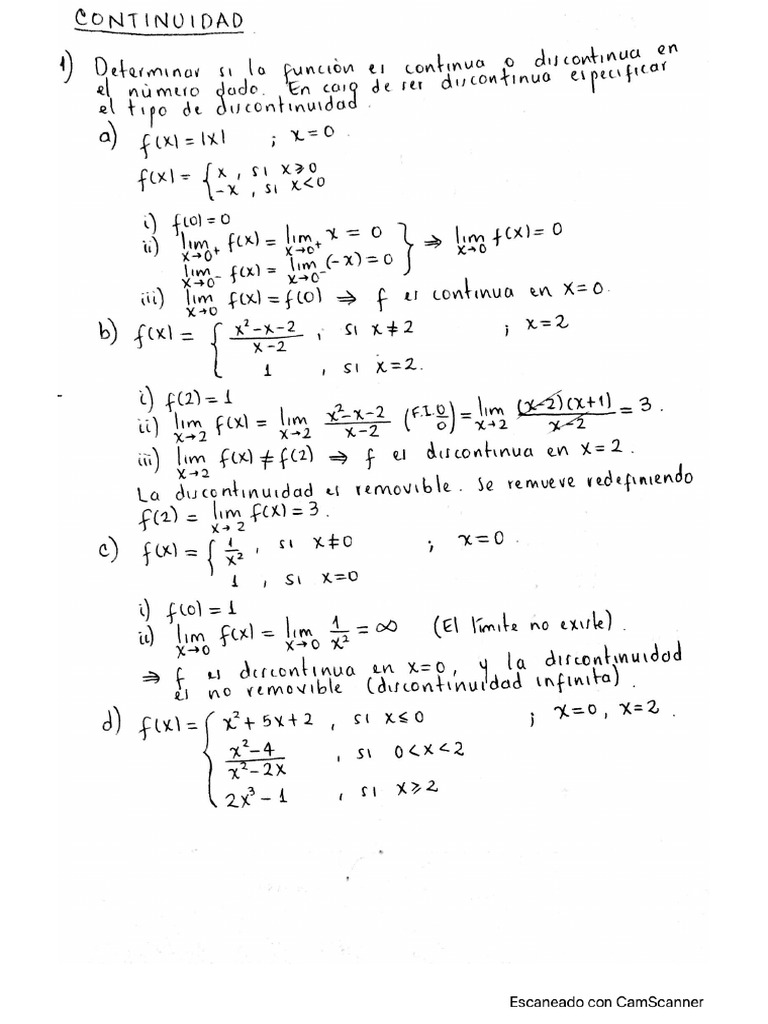 CONTINUIDAD
1) Determinar si la función es continua o discontinua en
el número dado. En caso de ser discontinua especificar
el tipo de discontinuidad.
a) f(x) = |x| ; x=0.
f(x) = { x , si x≥0
-x , si x<0
i) f(0)=0
ii) lim x→0+ f(x) = lim x→0+ x = 0
lim x→0- f(x) = lim x→0- (-x) = 0 } ⇒ lim x→0 f(x) = 0
iii) lim x→0 f(x) = f(0) ⇒ f es continua en x=0.
b) f(x) = { x²-x-2 / x-2 , si x≠2 ; x=2
1 , si x=2.
i) f(2)=1
ii) lim x→2 f(x) = lim x→2 x²-x-2 / x-2 (F.I. 0/0) = lim x→2 (x-2)(x+1) / x-2 = 3.
iii) lim x→2 f(x) ≠ f(2) ⇒ f es discontinua en x=2.
La discontinuidad es removible. Se remueve redefiniendo
f(2) = lim x→2 f(x) = 3.
c) f(x) = { 1/x² , si x≠0 ; x=0.
1 , si x=0
i) f(0)=1
ii) lim x→0 f(x) = lim x→0 1/x² = ∞ (El límite no existe).
⇒ f es discontinua en x=0, y la discontinuidad
es no removible (discontinuidad infinita).
d) f(x) = { x²+5x+2 , si x≤0 ; x=0, x=2.
x²-4 / x²-2x , si 0<x<2
2x³-1 , si x≥2
Escaneado con CamScanner